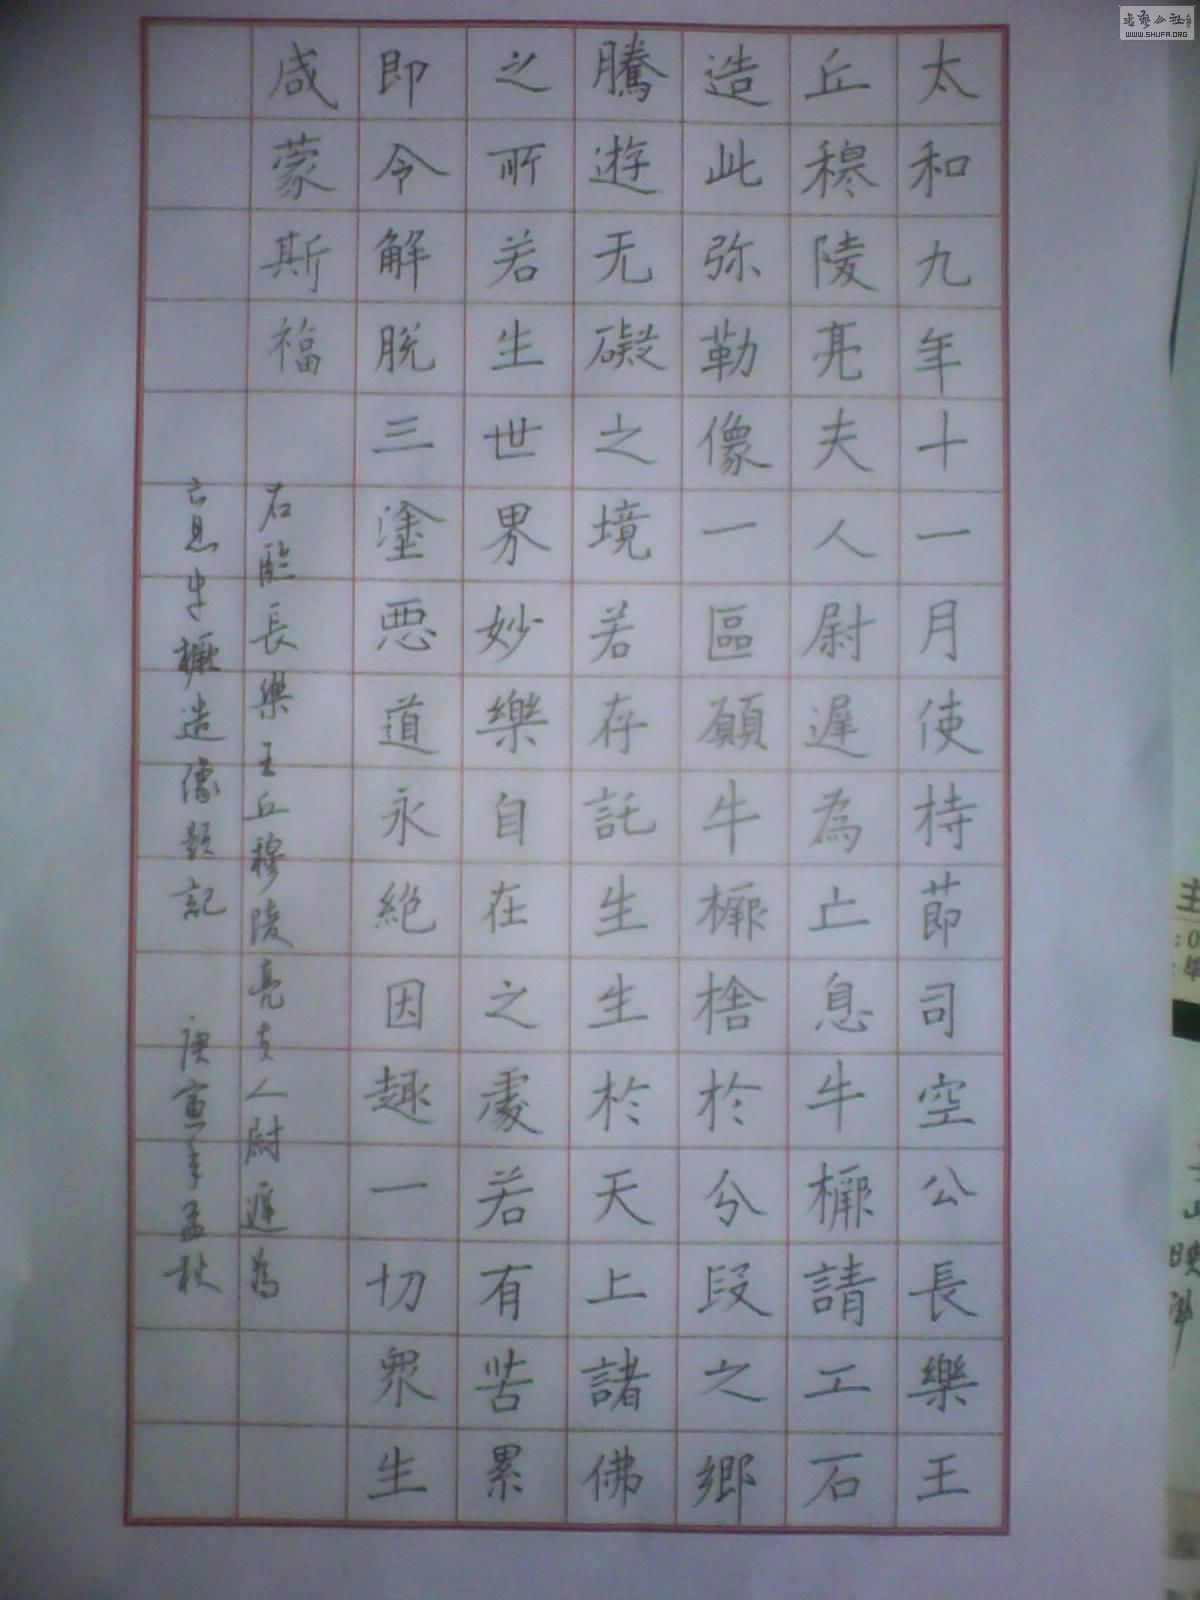 太和九年十一月使持節司空公長樂王
丘穆陵亮夫人尉遲為亡息牛橛請工石
造此弥勒像一區願牛橛捨於分段之鄉
騰遊无礙之境若存託生生於天上諸佛
之所若生世界妙樂自在之處若有苦累
即令解脱三塗悪道永絶因趣一切眾生
咸蒙斯福
右臨長樂王丘穆陵亮夫人尉遲為
亡息牛橛造像題記 庚寅年孟秋
書藝公社
WWW.SHUFA.ORG
主
山映